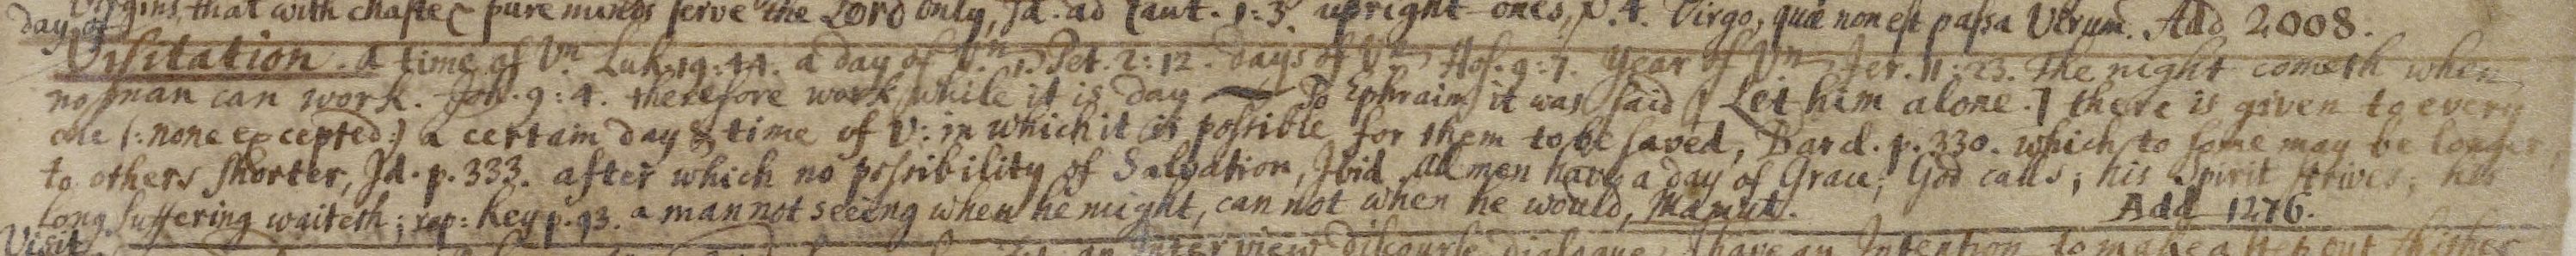 Virgins, that with chaste & pure minds serve the Lord only, Id. ad Cant. 1:3. upright ones, v. 4. Virgo, quæ non est passa Virum. Add 2008.
day of
Visitation. a time of Vn. Luk. 19:44. a day of Vn. 1. Pet. 2:12. days of Vn Hos. 9:7. Year of Vn Jer. 11:23. The night cometh when
no man can work. Joh. 9:4. therefore work while it is day — To Ephraim it was said [Let him alone.] there is given to every
one (:none excepted:) a certain day & time of V: in which it is possible for them to be saved, Barcl. p. 330. which to some may be longer,
to others shorter, Id. p. 333. after which no possibility of Salvation, Ibid. all men have a day of Grace; God calls; his Spirit strives; his
long Suffering waiteth; Key p. 93. a man not seeing when he might, can not when he would, Add 1276.
Visit
an Interview, Discourse, dialogue, I have an Intention to make a step out thither